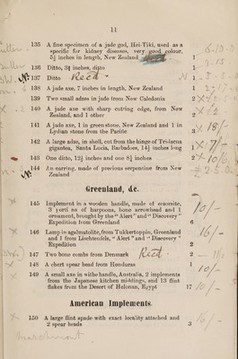 11
135 A fine specimen of a jade god, Hei-Tiki, used as
a specific for kidney diseases, very good colour,
5¼ inches in length, New Zealand 1
136 Ditto, 3¾ inches, ditto 1
137 Ditto 1
138 A jade axe, 7 inches in length, New Zealand 1
139 Two small adzes in jade from New Caledonia 2
140 A jade axe with sharp cutting edge, from New
Zealand, and 1 other 2
141 A jade axe, 1 in green stone, New Zealand and 1 in
Lydian stone from the Pacific 3
142 A large adze, in shell, cut from the hinge of Tridacna
gigantea, Santa Lucia, Barbados, 14½ inches long 1
143 One ditto, 12½ inches and one 8½ inches 2
144 An earring, made of precious serpentine from New
Zealand 1
Greenland, &c.
145 Implement in a wooden handle, made of
of harpoons, bone arrowhead and 1
ornament, brought by the "Alert" and "Discovery"
Expedition from Greenland 6
146 Lamp is agalmatolite, from Tukkertoppis, Greenland
and 1 from Liechtenfels, "Alert" and "Discovery"
Expedition 2
147 Two bone combs from Denmark 2
148 A short spear head from Honduras 1
149 A small axe in withe handle, Australia, 2 implements
from the Japanese kitchen middings, and 13 flint
flakes from the Desert of Halouan, Egypt 17
10/-
American Implements.
150 A large flint spade with exact locality attached and
2 spear heads 3